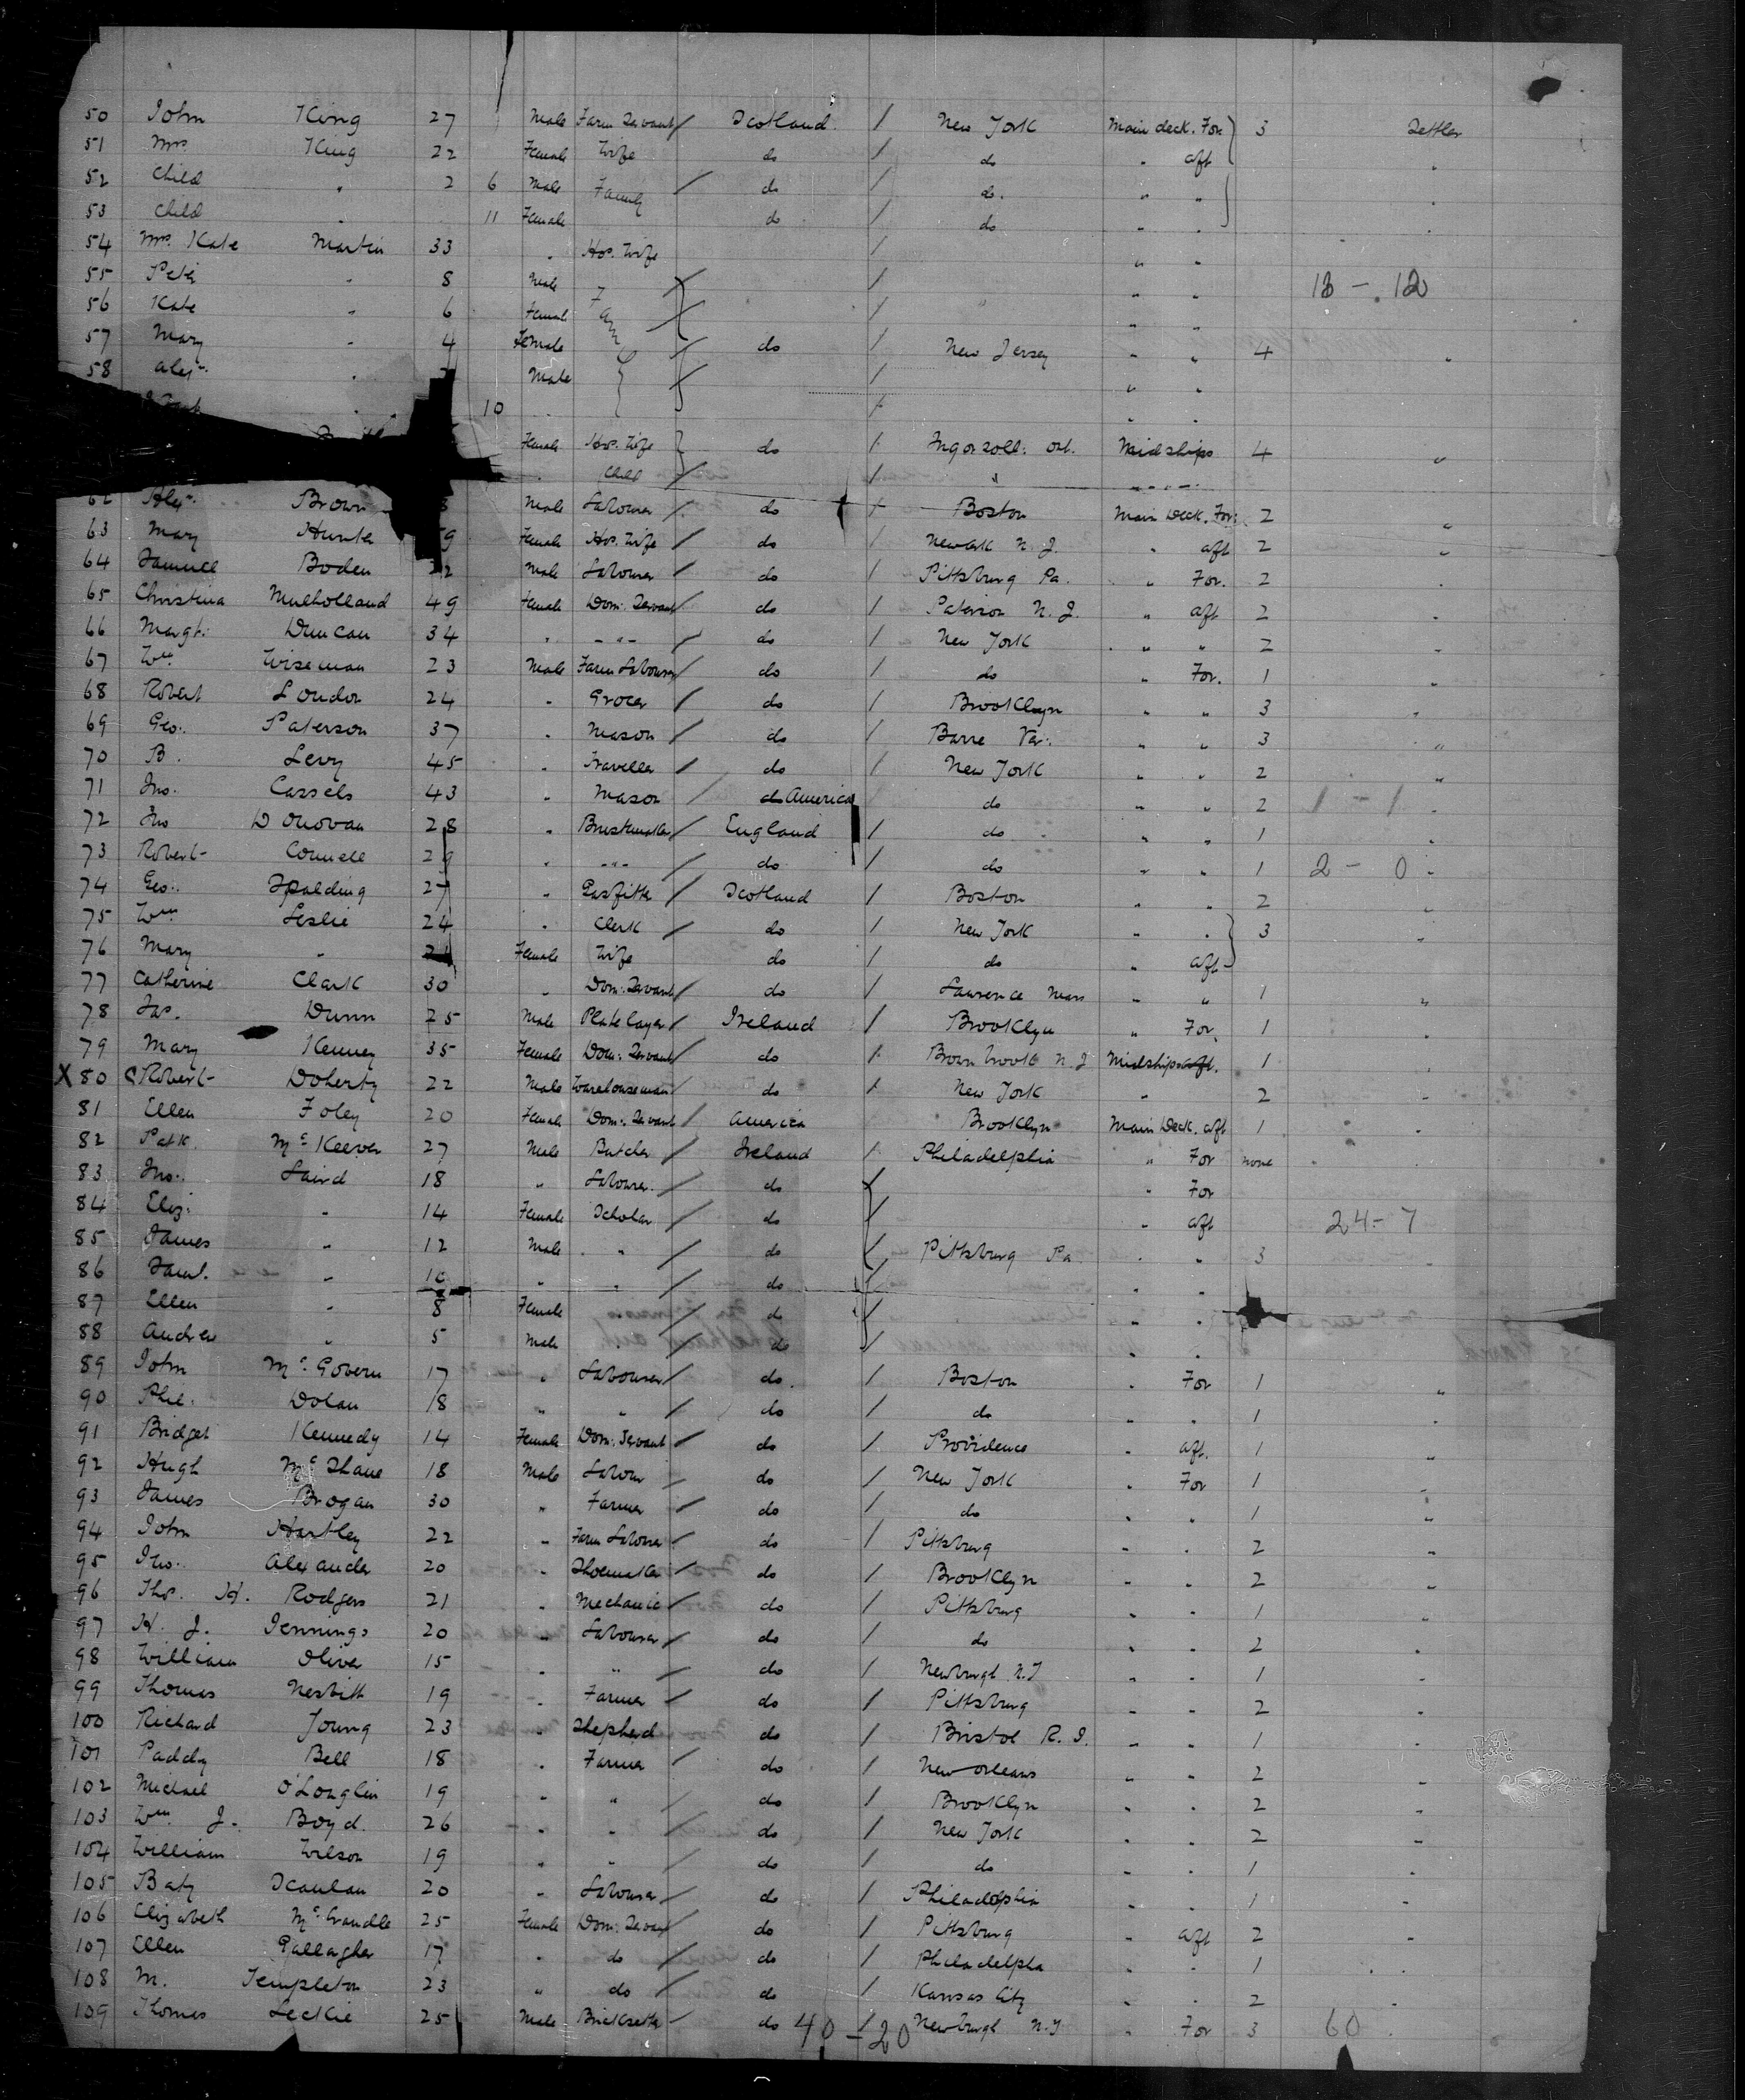 50 John King 27 Male Farm Servant / Scotland / New York Main deck. For. 3 Settler
51 Mrs King 22 Female Wife do / do " aft "
52 Child " 2 6 Male Family / do / do. " " "
53 Child " 11 Female do / do " " "
54 Mrs. Kate Martin 33 " Hos. Wife / " "
55 Peter " 8 Male / / " " 18 - 12
56 Kate " 6 Female / / " " "
57 Mary " 4 Female / do / New Jersey " " 4 "
58 Alexr. " Male / / " "
10 " / " "
Female Hos. Wife do / Ingersoll. Ont. Midships 4 "
" Child / / "
62 Alexr. Brown Male Labourer / do / Boston Main Deck. For. 2 "
63 Mary Hunter 9 Female Hos. Wife / do / Newark N. J. " aft 2 "
64 Samuel Boden 22 Male Labourer / do / Pittsburg Pa. " For. 2 "
65 Christina Mulholland 49 Female Dom. Servant / do / Paterson N. J. " aft 2
66 Margt. Duncan 34 " - " - / do / New York " " 2 "
67 Wm Wiseman 23 Male Farm Labourer / do / do " For. 1 "
68 Robert Loudon 24 " Grocer / do / Brooklyn " " 3 "
69 Geo. Paterson 37 " Mason / do / Barre Va. " " 3 "
70 B. Levy 45 " Traveller / do / New York " " 2 "
71 Jno. Cassels 43 " Mason / do America do " " 2 1 - 1 "
72 Jno Donovan 28 " Brushmaker / England / do " " 1 "
73 Robert Connell 29 " - " - / do / do " " 1 2 - 0 "
74 Geo. Spalding 27 " Gasfitter / Scotland / Boston " " 2 "
75 Wm Leslie 24 " Clerk / do / New York " " 3 "
76 Mary " Female Wife do / do " aft
77 Catherine Clark 30 " Dom. Servant / do / Lawrence Mass " " 1 "
78 Jas. Dunn 25 Male Plate layer / Ireland / Brooklyn " For. 1 "
79 Mary Kenney 35 Female Dom. Servant / do / Boun brook N. J Midships aft. 1 "
X 80 Robert Doherty 22 Male Warehouseman / do / New York " 2 "
81 Ellen Foley 20 Female Dom. Servant / America Brooklyn Main Deck. aft 1 "
82 Patk. McKeever 27 Male Butcher / Ireland / Philadelphia " For none "
83 Jno. Laird 18 " Labourer. / do / " For
84 Eliz. " 14 Female Scholar / do / " aft 24 - 7
85 James " 12 Male " / do / Pittsburg Pa. " " 3 "
86 Saml. " 10 " " / do / " "
87 Ellen " 8 Female / do / " "
88 Andrew " 5 Male " / do / " "
89 John McGovern 17 " Labourer / do. / Boston " For 1 "
90 Phil. Dolan 18 " " / do / do " " 1 "
91 Bridget Kennedy 14 Female Dom. Servant / do / Providence " aft. 1 "
92 Hugh McShane 18 Male Labour / do / New York " For 1 "
93 James Brogan 30 " Farmer / do / do " " 1 "
94 John Hartley 22 " Farm Labourer / do / Pittsburg " " 2 "
95 Jno. Alexander 20 " Shoemaker / do / Brooklyn " " 2 "
96 Thos. H. Rodgers 21 " Mechanic / do / Pittsburg " " 1 "
97 H. J. Jennings 20 " Labourer / do / do " " 2 "
98 William Oliver 15 " " do / Newburgh N.Y " " 1 "
99 Thomas Nesbitt 19 " Farmer / do / Pittsburg " " 2 "
100 Richard Young 23 " Shepherd do / Bristol R. I. " " 1 "
101 Paddy Bell 18 " Farmer / do / New Orleans " " 2 "
102 Michael O'Loughlin 19 " " / do / Brooklyn " " 2 "
103 Wm. J. Boyd. 26 " " / do / New York " " 2 "
104 William Wilson 19 " " / do / do " " 1 "
105 Baty Scanlan 20 " Labourer / do / Philadelphia " " 1 "
106 Elizabeth McCrandle 25 Female Dom. Servant / do / Pittsburg " aft 2 "
107 Ellen Gallagher 17 " do / do / Philadelpha " " 1 "
108 M. Templeton 23 " do / do / Kansas City " " 2 "
109 Thomas Leckie 25 Male Bricksetter / do / Newburgh N.Y. " For 3 60
40 - 20